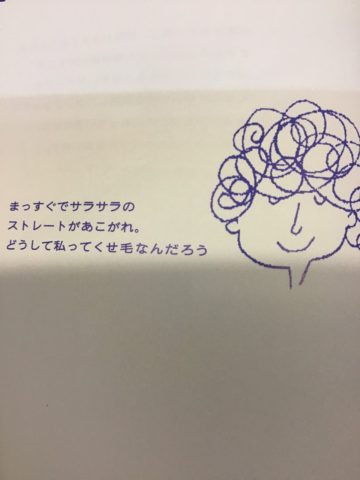 まっすぐでサラサラの
ストレートがあこがれ。
どうして私ってくせ毛なんだろう